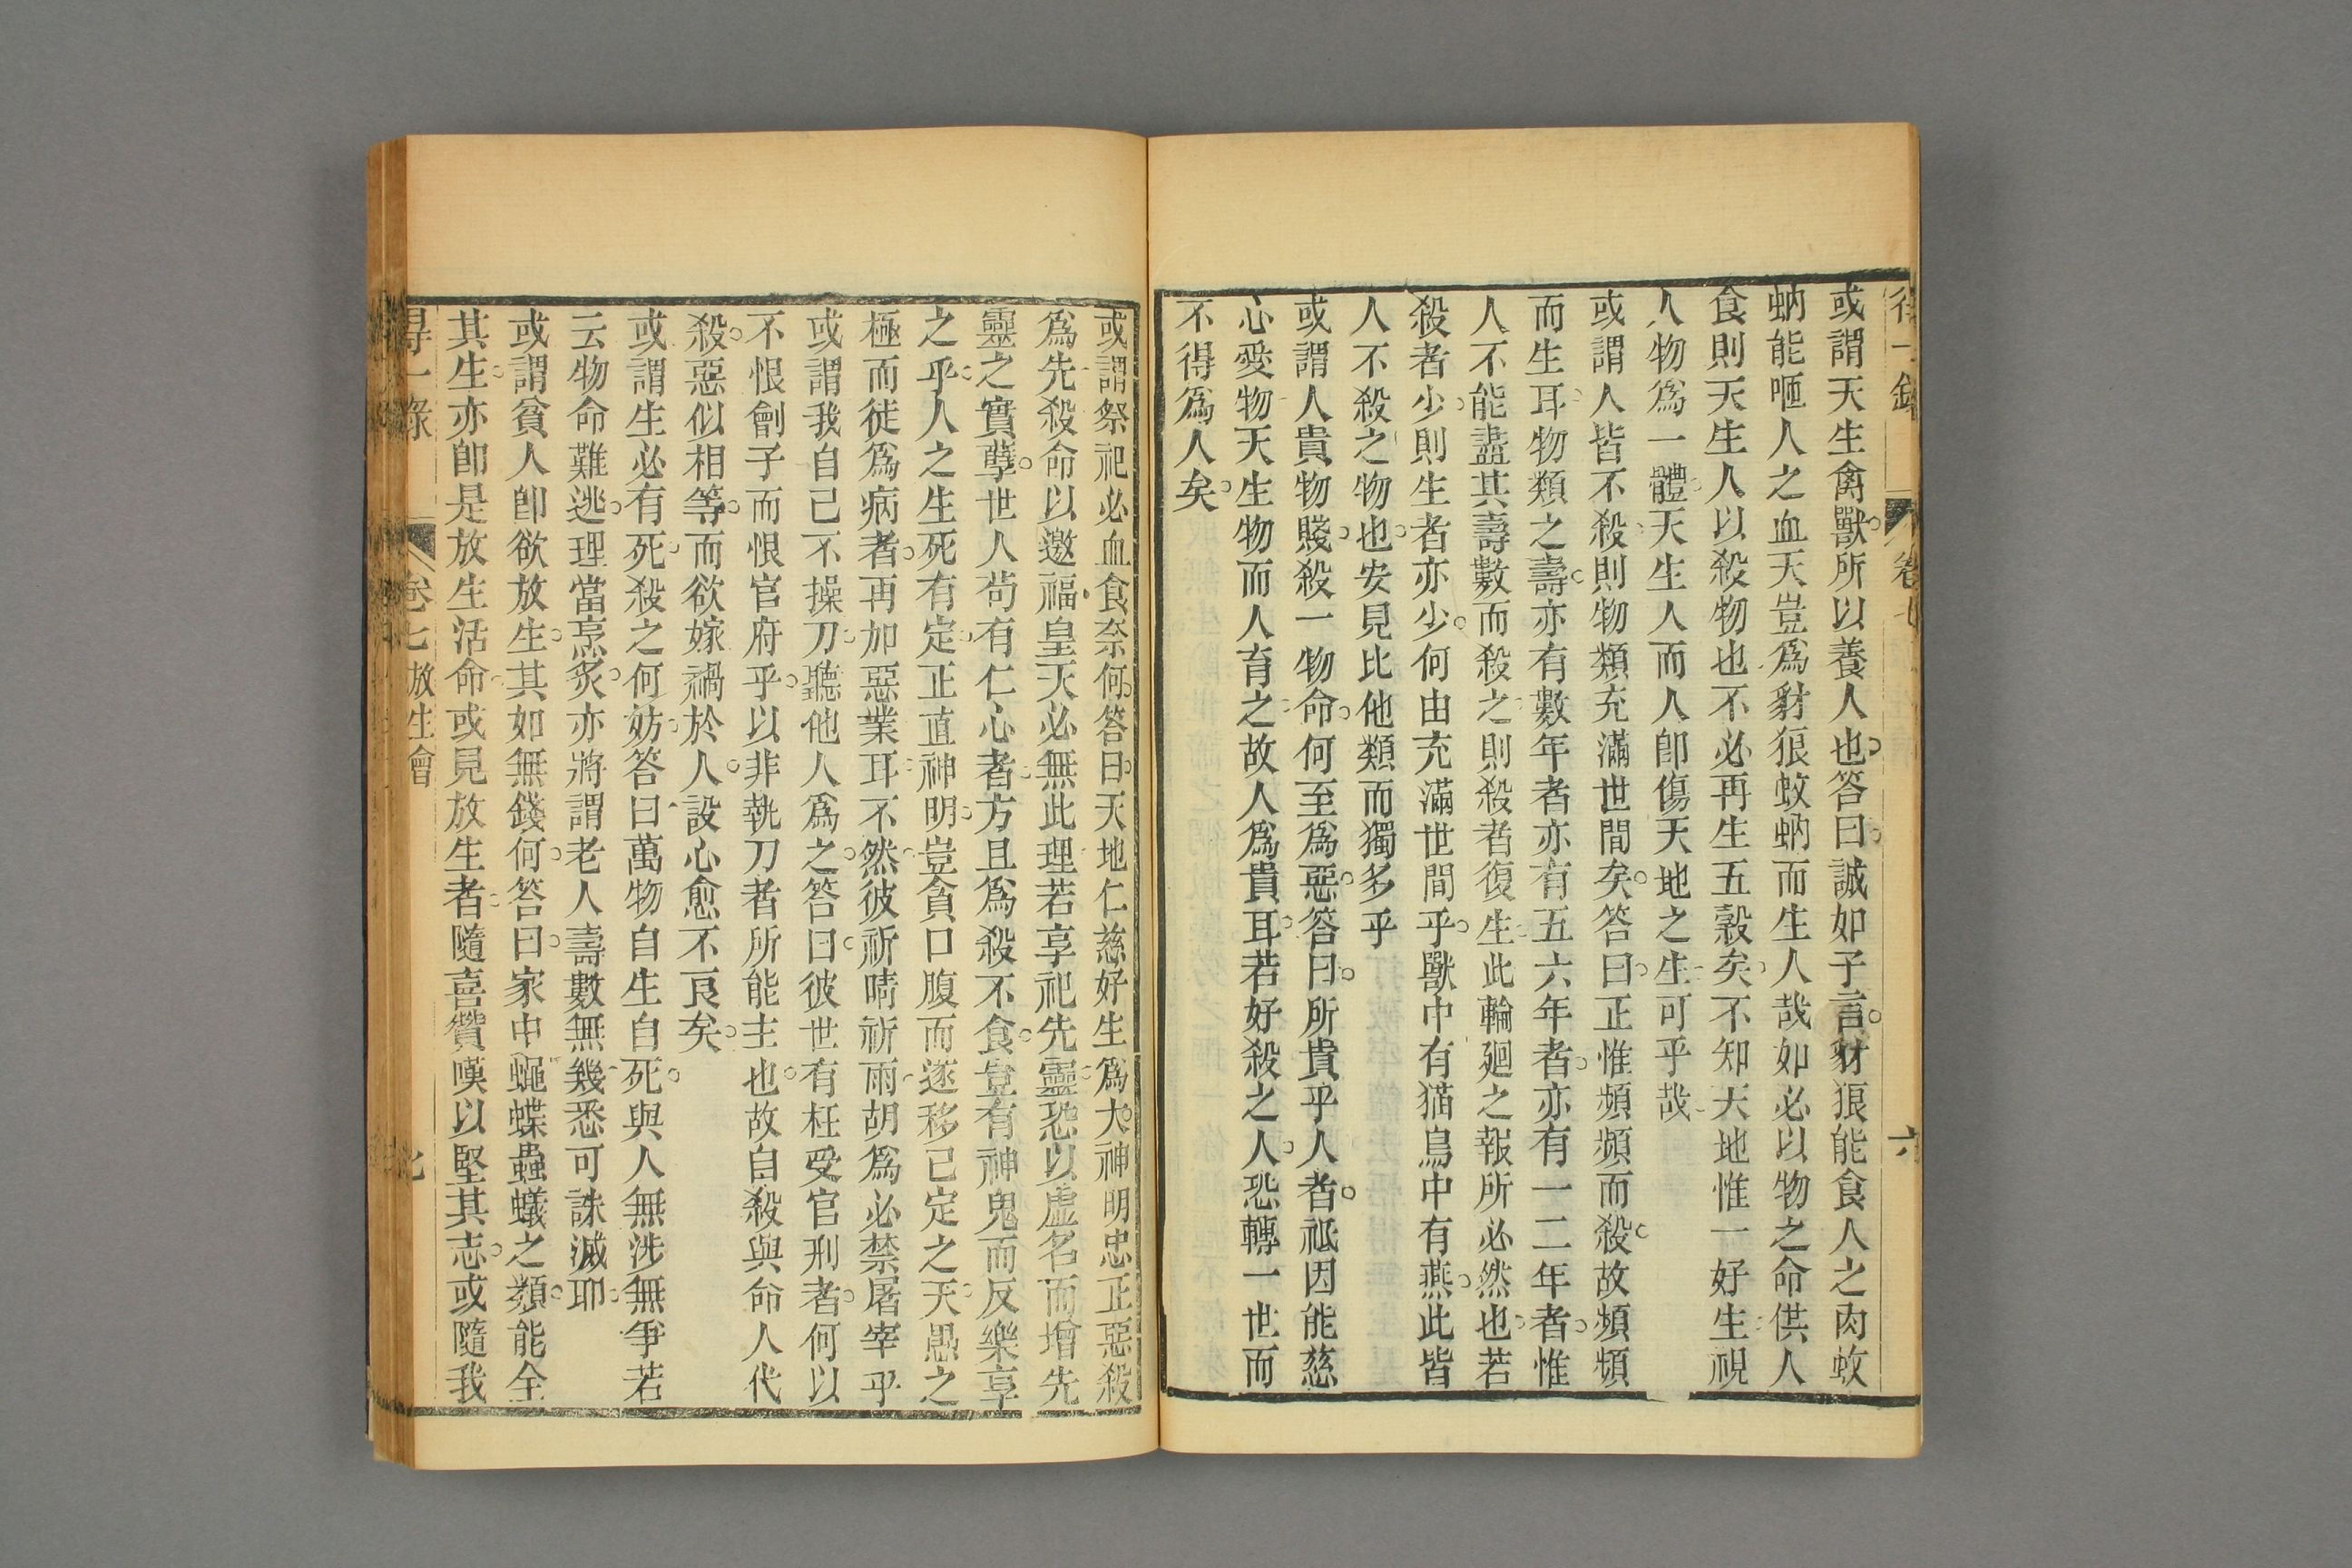 或謂天生禽獸所以養人也答曰誠如子言豺狼能食人之肉蚊
蚋能咂人之血天豈爲豺狼蚊蚋而生人哉如必以物之命供人
食則天生人以殺物也不必再生五穀矣不知天地惟一好生視
人物爲一體天生人而人卽傷天地之生可乎哉
或謂人皆不殺則物類充滿世間矣答曰正惟頻頻而殺故頻頻
而生耳物類之壽亦有數年者亦有五六年者亦有一二年者惟
人不能盡其壽數而殺之則殺者復生此輪廻之報所必然也若
殺者少則生者亦少何由充滿世間乎獸中有猫鳥中有燕此皆
人不殺之物也安見比他類而獨多乎
或謂人貴物賤殺一物命何至爲惡答曰所貴乎人者祗因能慈
心愛物天生物而人育之故人爲貴耳若好殺之人恐轉一世而
不得爲人矣
或謂祭祀必血食奈何答曰天地仁慈好生爲大神明忠正惡殺
爲先殺命以邀福皇天必無此理若享祀先靈恐以虛名而增先
靈之實孽世人茍有仁心者方且爲殺不食豈有神鬼而反樂享
之乎人之生死有定正直神明豈貪口腹而遂移已定之天愚之
極而徒爲病者再加惡業耳不然彼祈晴祈雨胡爲必禁屠宰乎
或謂我自己不操刀聽他人爲之答曰彼世有枉受官刑者何以
不恨劊子而恨官府乎以非執刀者所能主也故自殺與命人代
殺惡似相等而欲嫁禍於人設心愈不良矣
或謂生必有死殺之何妨答曰萬物自生自死與人無涉無爭若
云物命難逃理當烹炙亦將謂老人壽數無幾悉可誅滅耶
或謂貧人卽欲放生其如無錢何答曰家中蠅蝶蟲蟻之類能全
其生亦卽是放生活命或見放生者隨喜贊嘆以堅其志或隨我
得一錄 卷七放生會